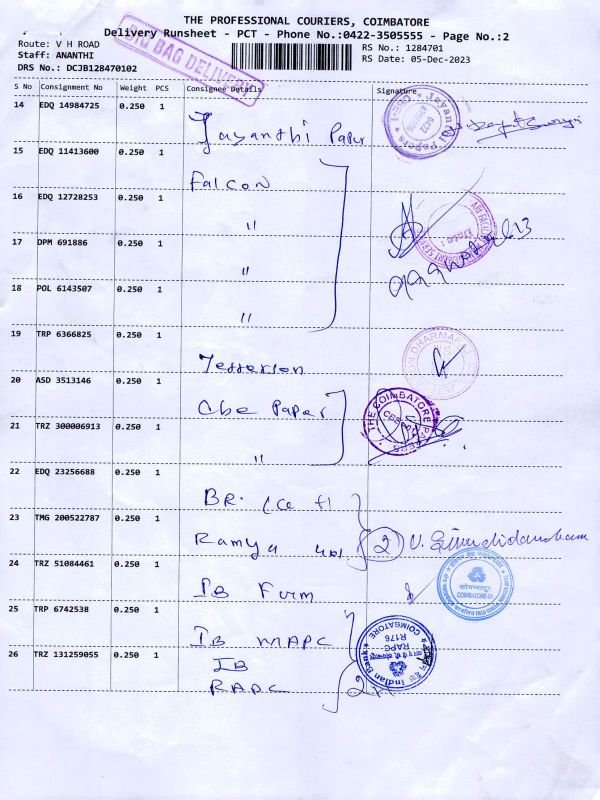 THE PROFESSIONAL COURIERS, COIMBATORE
Delivery Runsheet - PCT - Phone No.:0422-3505555 - Page No.:2
Route: V H ROAD
Staff: ANANTHI
DRS No.: DCJB128470102
BIG BAG DELIVERY
RS No.: 1284701
RS Date: 05-Dec-2023
S No Consignment No Weight PCS Consignee Details Signature
14 EDQ 14984725 0.250 1
Jayanthi Paper
15 EDQ 11413600 0.250 1
Falcon
16 EDQ 12728253 0.250 1
"
17 DPM 691886 0.250 1
"
18 POL 6143507 0.250 1
"
19 TRP 6366825 0.250 1
20 ASD 3513146 0.250 1
Cbe Paper
THE COIMBATORE PAPERS
21 TRZ 300006913 0.250 1
"
22 EDQ 23256688 0.250 1
BR.
23 TMG 200522787 0.250 1
Ramya
2
24 TRZ 51084461 0.250 1
IB Firm
COIMBATORE-01
25 TRP 6742538 0.250 1
IB MAPC
Indian Bank
RAPC
R176
COIMBATORE
26 TRZ 131259055 0.250 1
IB
RAPC